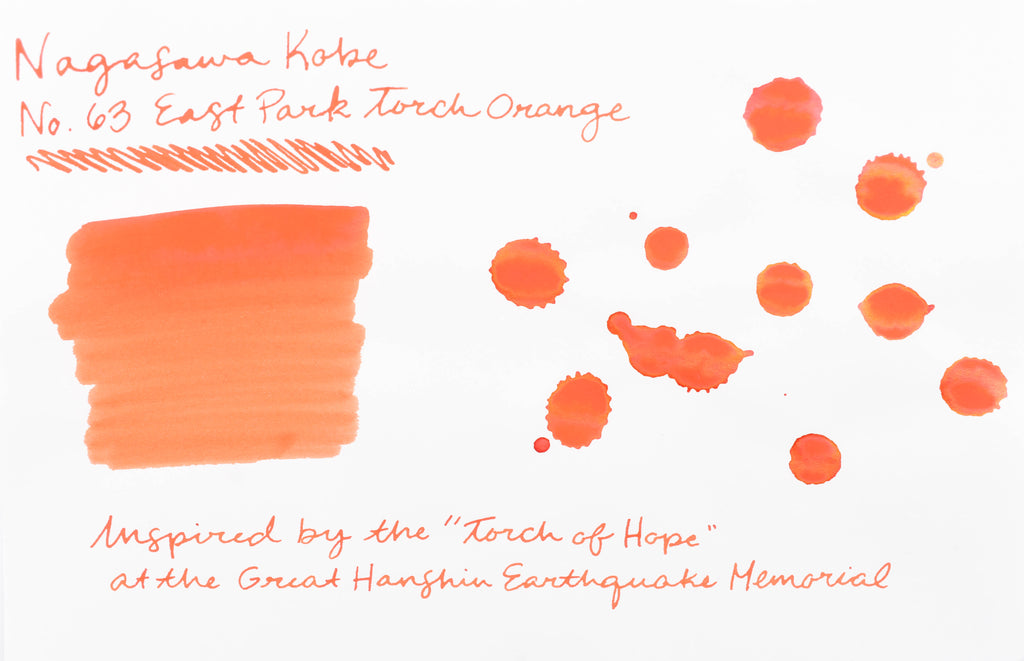 Nagasawa Kobe
No. 63 East Park Torch Orange
Inspired by the "Torch of Hope"
at the Great Hanshin Earthquake Memorial